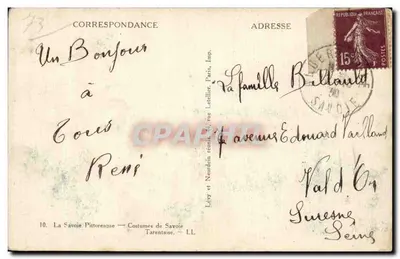 73
CORRESPONDANCE
ADRESSE
REPUBLIQUE FRANÇAISE
15
POSTES
SAVOIE
Un Bonjour
à
Tous
René
La famille Billault
7 avenue Edouard Vaillant
Val d'Or
Suresne
Seine
Lévy et Neurdein réunis, rue Letellier, Paris, Imp.
CPRAMA
10. La Savoie Pittoresque — Costumes de Savoie
Tarentaise. — LL